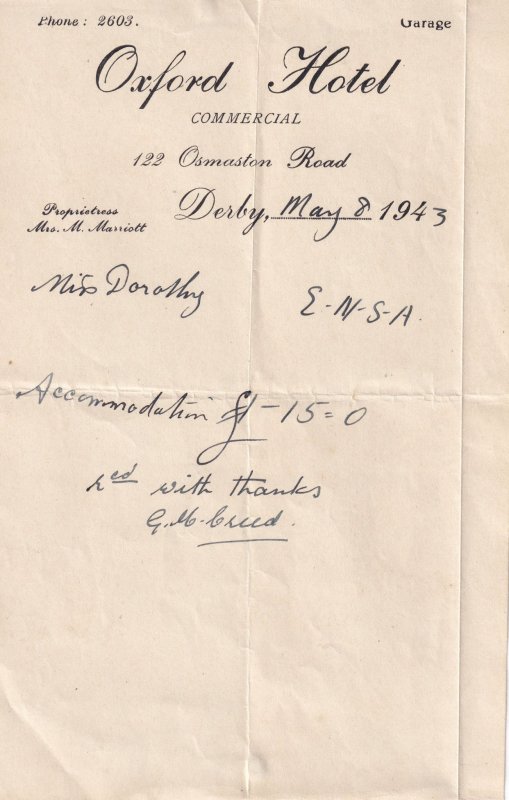 Phone: 2603.
Garage
Oxford Hotel
COMMERCIAL
122 Osmaston Road
Proprietress
Mrs. M. Marriott
Derby, May 8 1943
Miss Dorothy
E-N-S-A.
Accommodation £1-15=0
Red with thanks
G. M. Creed.